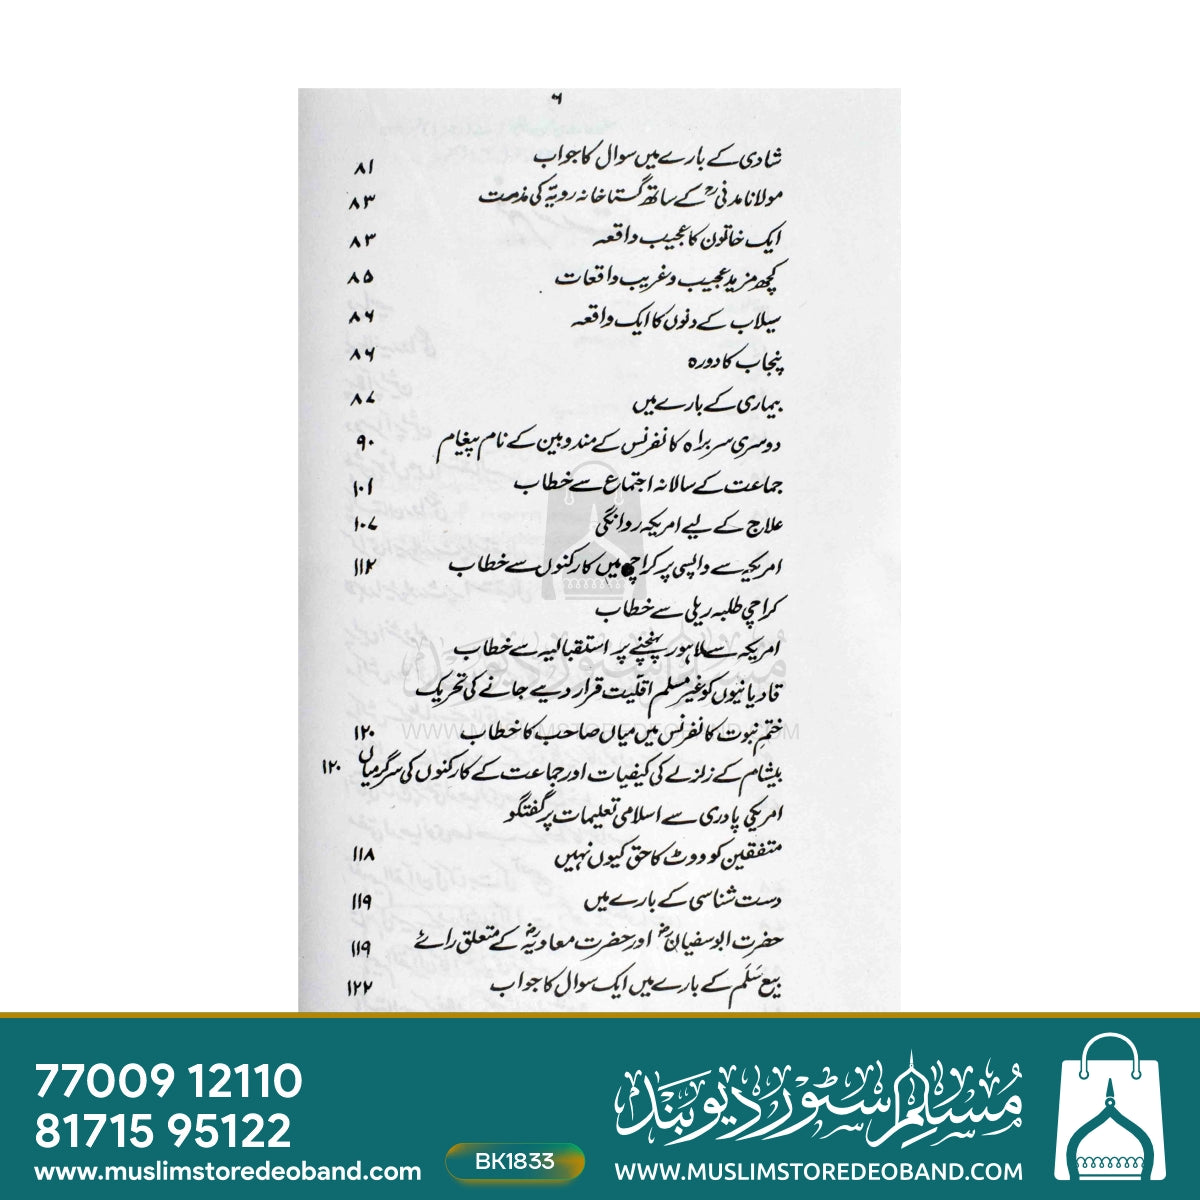 ۶
شادی کے بارے میں سوال کا جواب ۸۱
مولانا مدنیؒ کے ساتھ گستاخانہ رویّہ کی مذمت ۸۳
ایک خاتون کا عجیب واقعہ ۸۳
کچھ مزید عجیب و غریب واقعات ۸۵
سیلاب کے دنوں کا ایک واقعہ ۸۶
پنجاب کا دورہ ۸۶
بیماری کے بارے میں ۸۷
دوسری سربراہ کانفرنس کے مندوبین کے نام پیغام ۹۰
جماعت کے سالانہ اجتماع سے خطاب ۱۰۱
علاج کے لیے امریکہ روانگی ۱۰۷
امریکہ سے واپسی پر کراچی میں کارکنوں سے خطاب ۱۱۲
کراچی طلبہ ریلی سے خطاب
امریکہ سے لاہور پہنچنے پر استقبالیہ سے خطاب
قادیانیوں کو غیر مسلم اقلیت قرار دیے جانے کی تحریک
ختم نبوت کانفرنس میں میاں صاحب کا خطاب ۱۲۰
بیشام کے زلزلے کی کیفیات اور جماعت کے کارکنوں کی سرگرمیاں ۱۲۰
امریکی پادری سے اسلامی تعلیمات پر گفتگو
متفقین کو ووٹ کا حق کیوں نہیں ۱۱۸
دست شناسی کے بارے میں ۱۱۹
حضرت ابوسفیانؓ اور حضرت معاویہؓ کے متعلق رائے ۱۱۹
بیع سَلَم کے بارے میں ایک سوال کا جواب ۱۲۲
WWW.MUSLIMSTOREDEOBAND.COM
77009 12110
81715 95122
www.muslimstoredeoband.com
BK1833
مُسلم سٹور دیوبند
WWW.MUSLIMSTOREDEOBAND.COM